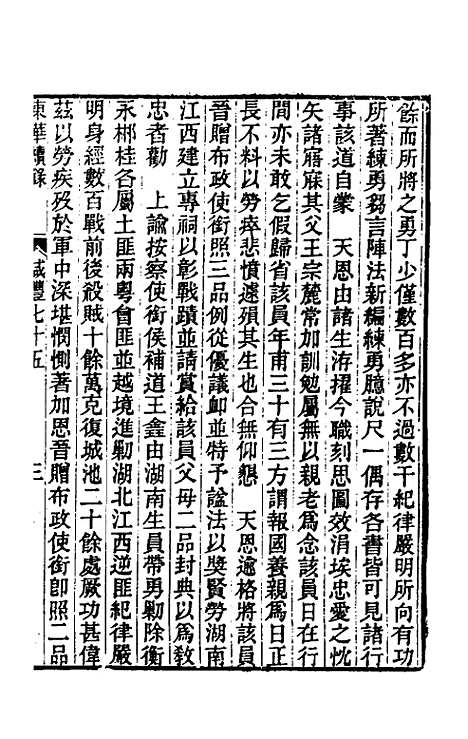 餘而所將之勇丁少僅數百多亦不過數千紀律嚴明所向有功
所著練勇芻言陣法新編練勇臆說尺一偶存各書皆可見諸行
事該道自蒙　天恩由諸生洊擢今職刻思圖效涓埃忠愛之忱
矢諸寤寐其父王宗麓常加訓勉屬無以親老爲念該員日在行
間亦未敢乞假歸省該員年甫三十有三方謂報國養親爲日正
長不料以勞瘁悲憤遽殞其生也合無仰懇　天恩逾格將該員
晉贈布政使銜照三品例從優議卹並特予諡法以獎賢勞湖南
江西建立專祠以彰戰蹟並請賞給該員父母二品封典以爲敎
忠者勸　上諭按察使銜候補道王鑫由湖南生員帶勇勦除衡
永郴桂各屬土匪兩粵會匪並越境進勦湖北江西逆匪紀律嚴
明身經數百戰前後殺賊十餘萬克復城池二十餘處厥功甚偉
茲以勞疾歿於軍中深堪憫惻著加恩晉贈布政使銜卽照二品
東華續錄　咸豐七十五　三